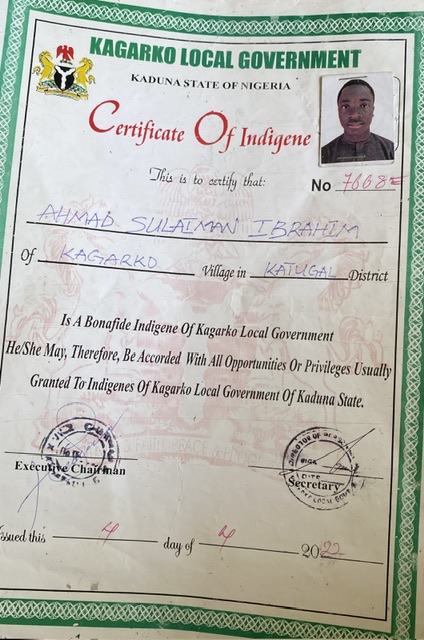 KAGARKO LOCAL GOVERNMENT
KADUNA STATE OF NIGERIA
Certificate Of Indigene
This is to certify that:
No 7668
AHMAD SULAIMAN IBRAHIM
Of KAGARKO Village in KATUGAL District
Is A Bonafide Indigene Of Kagarko Local Government
He/She May, Therefore, Be Accorded With All Opportunities Or Privileges Usually
Granted To Indigenes Of Kagarko Local Government Of Kaduna State.
DIRECTOR OF
SIGN
DATE
Executive Chairman
Secretary
Issued this 4 day of 4 2022